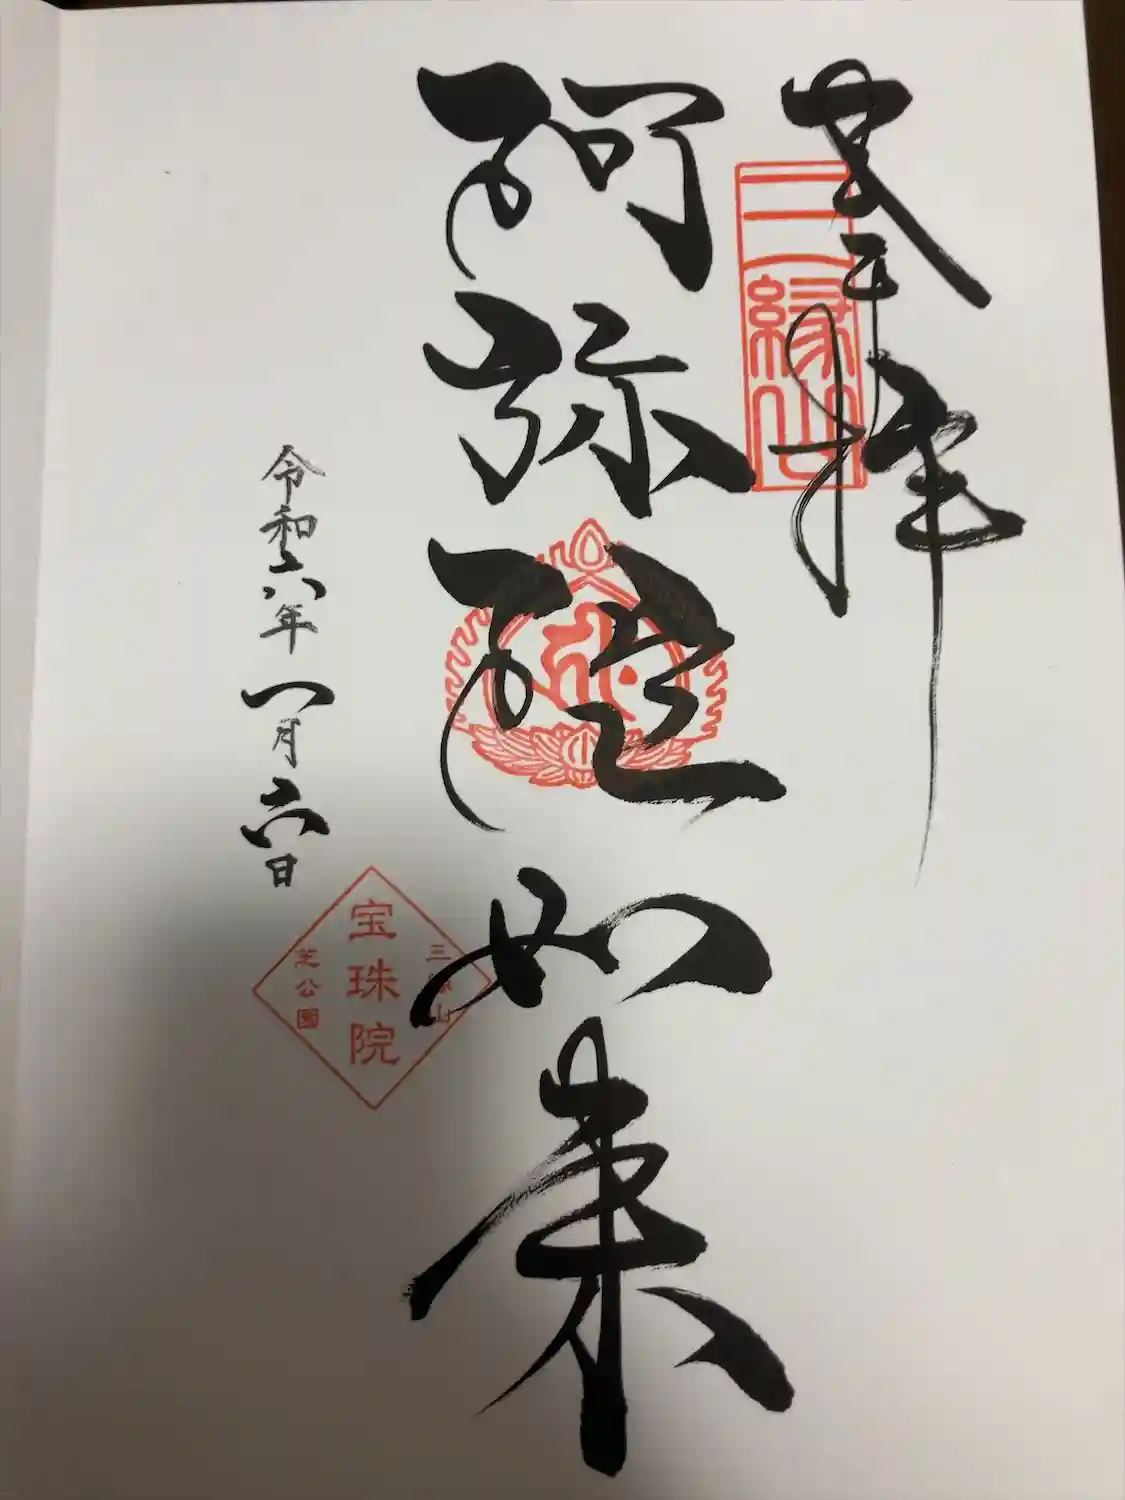 奉拝
三縁山
阿弥陀如来
三縁山
宝珠院
芝公園
令和六年一月六日